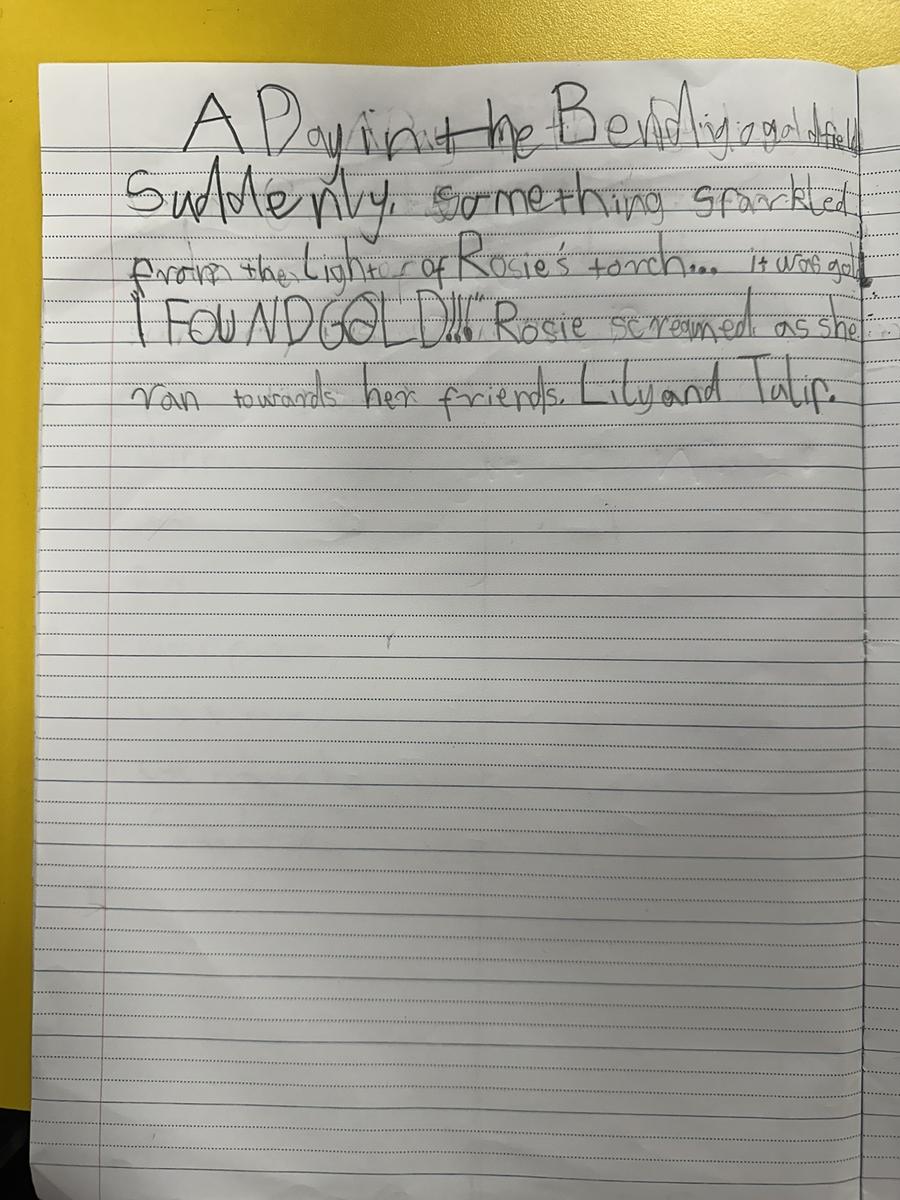 A Day in the Bendigo goldfield
Suddenly, something sparkled
from the light of Rosie's torch... it was gold
"I FOUND GOLD!!!" Rosie screamed as she
ran towards her friends. Lily and Tulip.